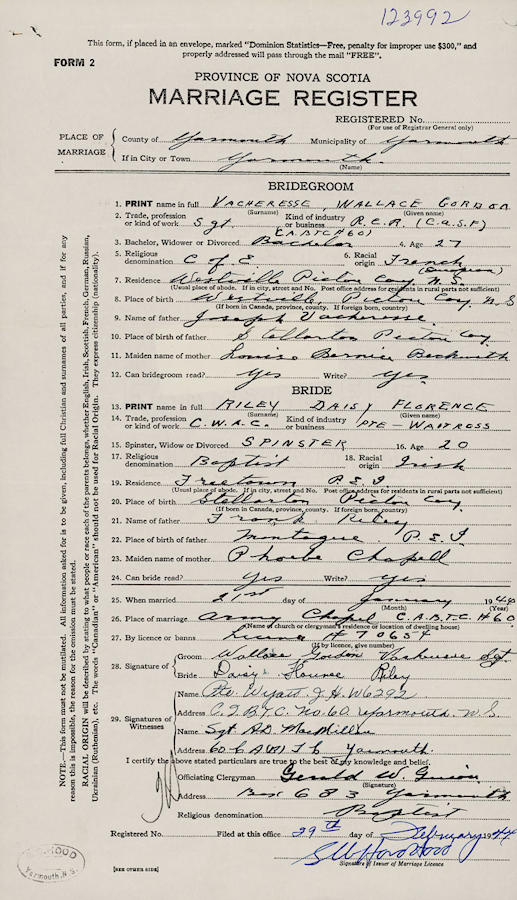 123992
This form, if placed in an envelope, marked "Dominion Statistics—Free, penalty for improper use $300," and
properly addressed will pass through the mail "FREE".
FORM 2
PROVINCE OF NOVA SCOTIA
MARRIAGE REGISTER
REGISTERED No.
(For use of Registrar General only)
PLACE OF MARRIAGE
County of Yarmouth Municipality of Yarmouth
If in City or Town Yarmouth.
(Name)
BRIDEGROOM
1. PRINT name in full VACHERESSE, WALLACE GORDON
(Surname) (Given name)
2. Trade, profession or kind of work Sgt. Kind of industry or business R.C.R. (C.A.S.F)
(A.B.T.C #60)
3. Bachelor, Widower or Divorced Bachelor 4. Age 27
5. Religious denomination C of E 6. Racial origin French
7. Residence Westville Pictou Coy N.S.
(Usual place of abode. If in city, street and No. Post office address for residents in rural parts not sufficient)
8. Place of birth Westville, Pictou Coy N S
(If born in Canada, province, county. If foreign born, country)
9. Name of father Joseph Vacheresse.
10. Place of birth of father Stellarton Pictou Coy.
11. Maiden name of mother Louise Bernice Beckwith
12. Can bridegroom read? Yes Write? Yes.
BRIDE
13. PRINT name in full RILEY DAISY FLORENCE
(Surname) (Given name)
14. Trade, profession or kind of work C.W.A.C. Kind of industry or business PTE - WAITRESS
15. Spinster, Widow or Divorced SPINSTER 16. Age 20
17. Religious denomination Baptist 18. Racial origin Irish
19. Residence Freetown P.E.I
(Usual place of abode. If in city, street and No. Post office address for residents in rural parts not sufficient)
20. Place of birth Stellarton Pictou Coy.
(If born in Canada, province, county. If foreign born, country)
21. Name of father Frank Riley
22. Place of birth of father Montague P.E.I
23. Maiden name of mother Phoebe Chapell
24. Can bride read? Yes Write? yes
25. When married 21st day of January 1944
(Month) (Year)
26. Place of marriage Army Chapel C.A.B.T.C. #60
(Name of church or clergyman's residence or location of dwelling house)
27. By licence or banns License # 70654
(If by licence, give number)
28. Signature of
Groom Wallace Gordon Vacheresse Sgt.
Bride Daisy Florence Riley
29. Signatures of Witnesses
Name Pte. Wyatt J.H. W6292
Address C.A.B.T.C. No. 60. Yarmouth. N.S.
Name Sgt MacMillan
Address 60 C A (B) T C Yarmouth.
I certify the above stated particulars are true to the best of my knowledge and belief.
Officiating Clergyman Gerald W.
(Signature)
Address Box 683 Yarmouth
Religious denomination Baptist
Registered No. Filed at this office 29th day of February 1944
Signature of Issuer of Marriage Licence
[SEE OTHER SIDE]
Yarmouth, N.S.
NOTE.—This form must not be mutilated. All information asked for is to be given, including full Christian and surnames of all parties, and if for any
reason this is impossible, the reason for the omission must be stated.
RACIAL ORIGIN will be described by stating to what people or race each of the parents belongs, whether English, Irish, Scottish, French, German, Russian,
Ukrainian (Ruthenian), etc. The words "Canadian" or "American" should not be used for Racial Origin. They express citizenship (nationality).